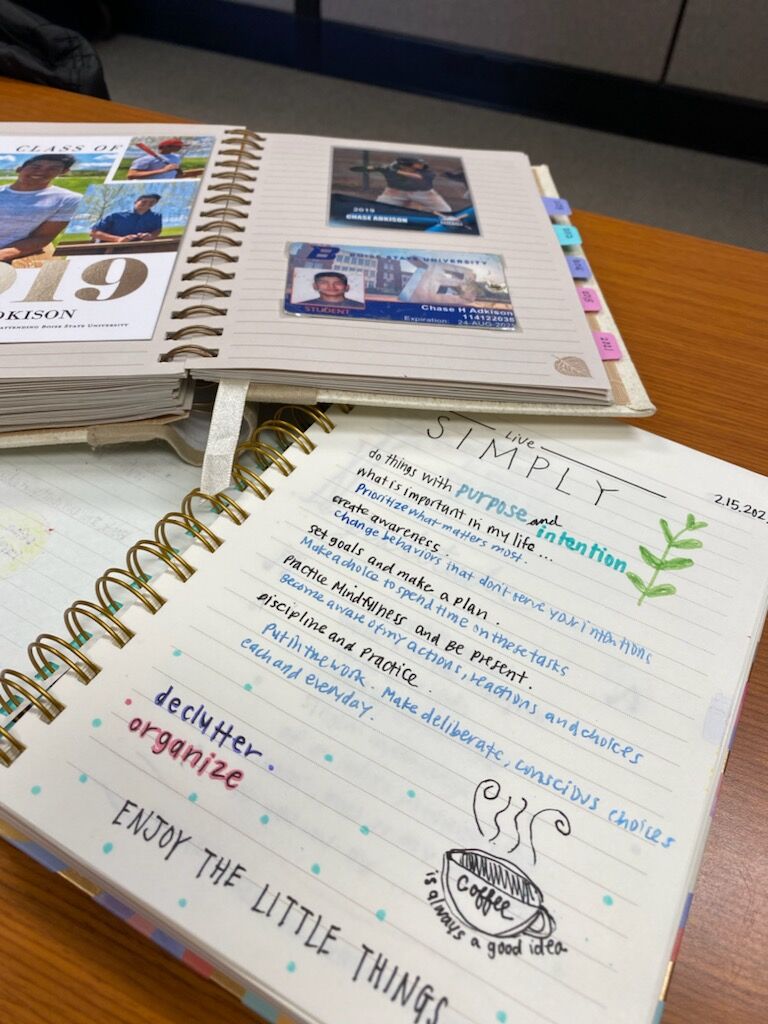 CLASS OF
2019
ADKISON
ATTENDING BOISE STATE UNIVERSITY
2019
CHASE ADKISON
BOISE STATE UNIVERSITY
STUDENT
Chase H Adkison
114122038
Expiration: 24-AUG-2023
Live
SIMPLY
2.15.202
do things with purpose and intention
what is important in my life...
Prioritize what matters most.
create awareness.
change behaviors that don't serve your intentions
set goals and make a plan.
Make a choice to spend time on these tasks
Practice Mindfulness and Be present.
Become aware of my actions, reactions and choices
Discipline and Practice.
Put in the work. Make deliberate, conscious choices
each and everyday.
declutter.
organize
coffee
is always a good idea
ENJOY THE LITTLE THINGS